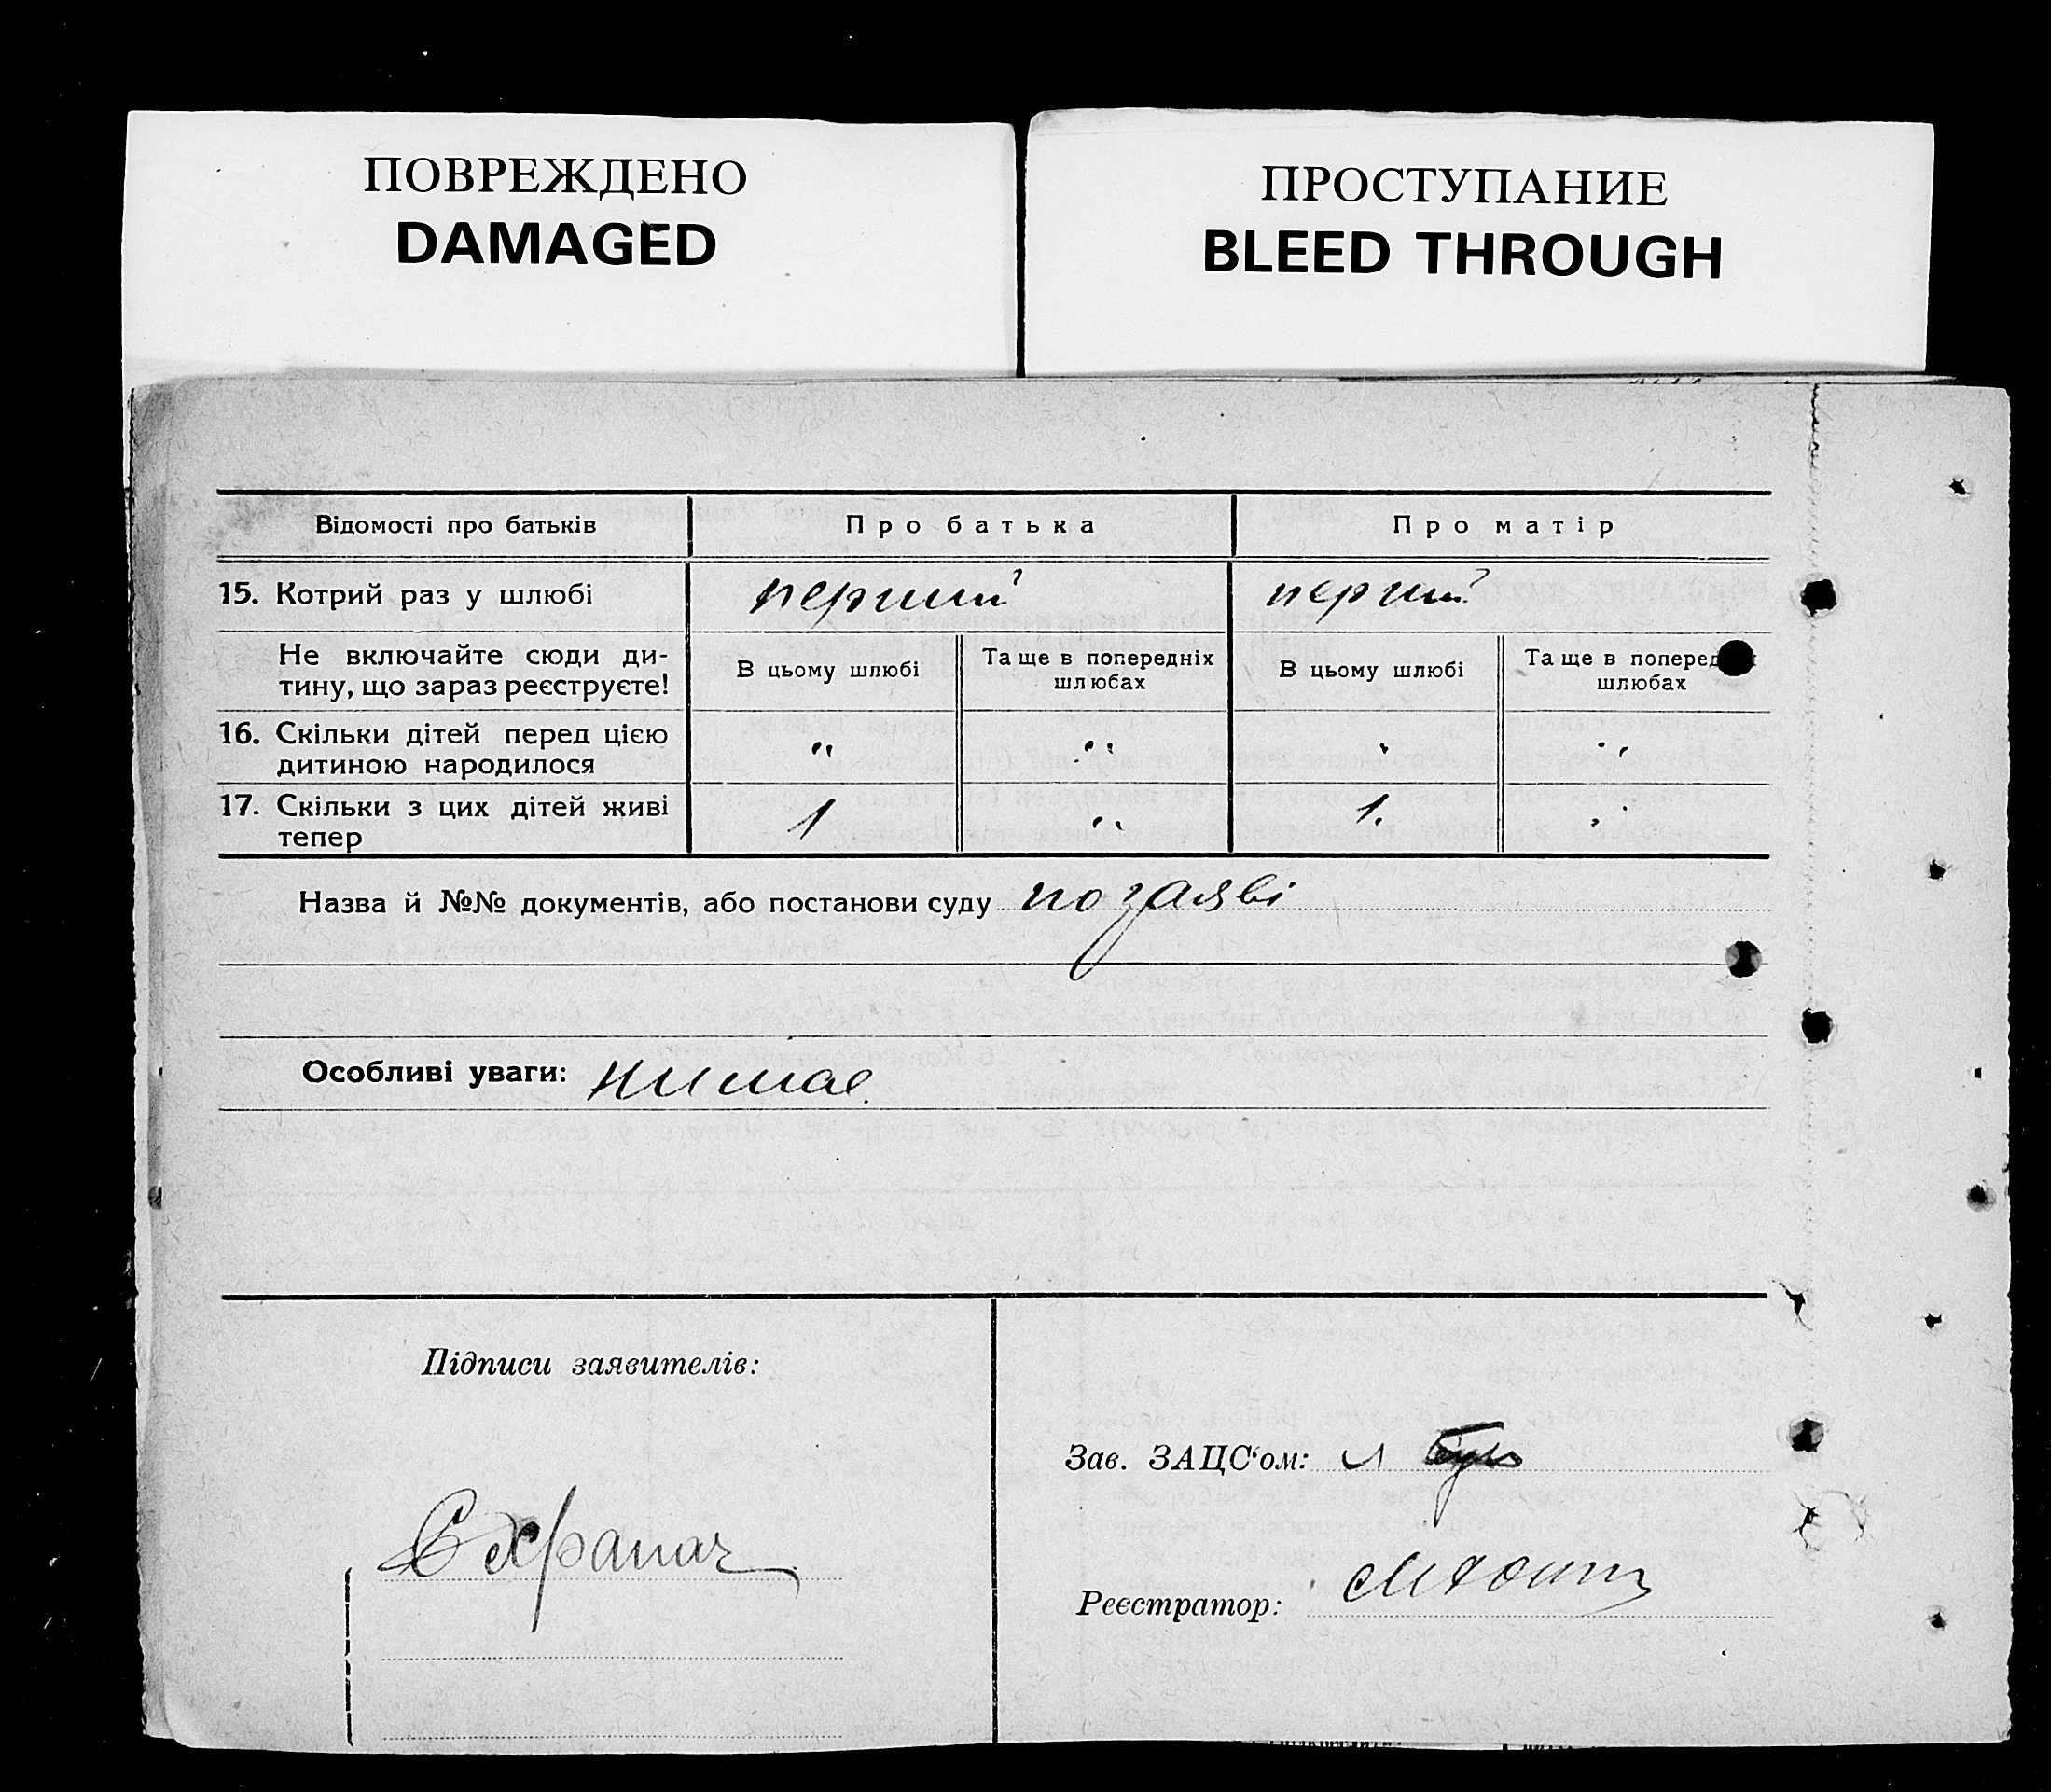 ПОВРЕЖДЕНО
DAMAGED
ПРОСТУПАНИЕ
BLEED THROUGH
Відомості про батьків Про батька Про матір
15. Котрий раз у шлюбі перший перший
Не включайте сюди ди-
тину, що зараз реєструєте!
В цьому шлюбі Та ще в попередніх
шлюбах
В цьому шлюбі Та ще в поперед
шлюбах
16. Скільки дітей перед цією
дитиною народилося
17. Скільки з цих дітей живі
тепер 1 1.
Назва й №№ документів, або постанови суду по заяві
Особливі уваги: нимає.
Підписи заявителів:
Зав. ЗАЦС‘ом:
Реєстратор: